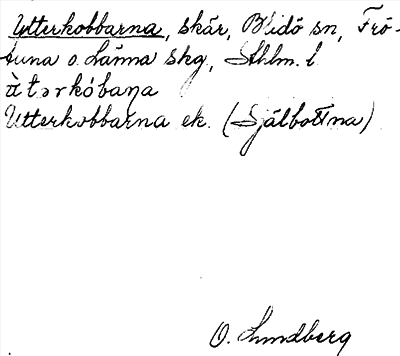 Utterkobbarna, skär, Blidö sn, Frö-
tuna o. Länna skg, Sthlm. l
ò̀tərkóbaṇa
Utterkobbarna ek. (Själbottna)
O. Lundberg